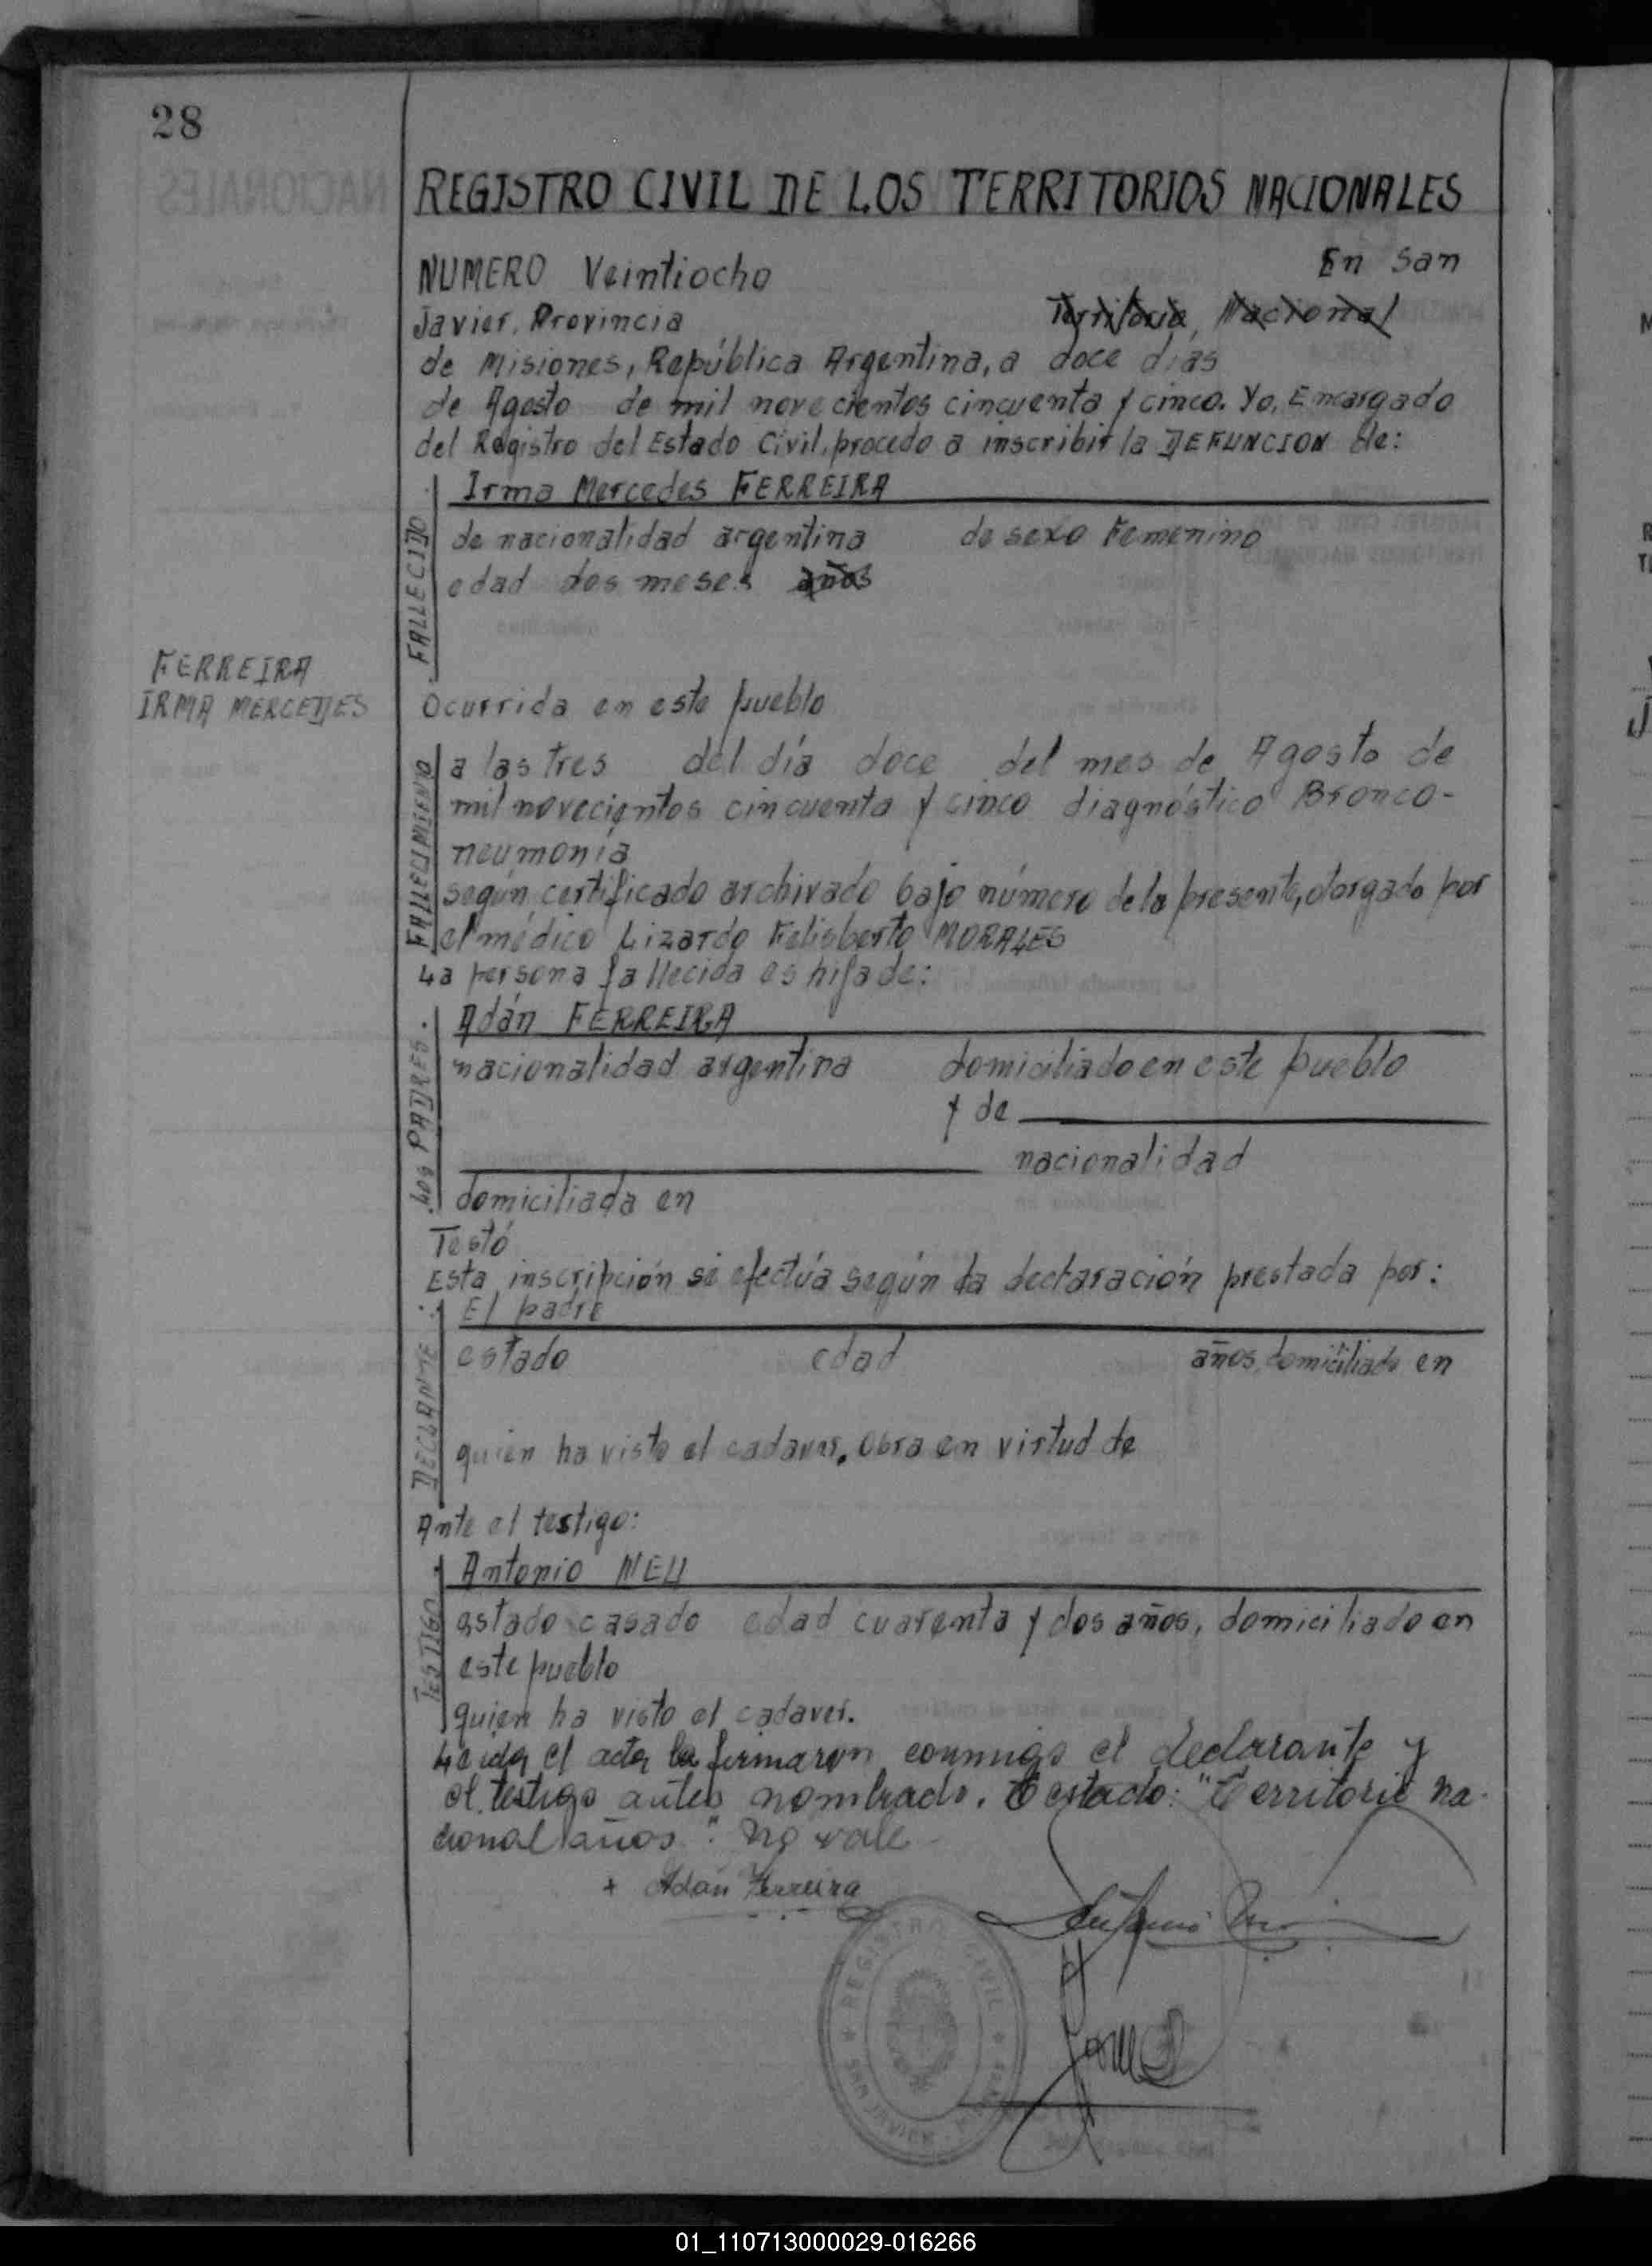 28
REGISTRO CIVIL DE LOS TERRITORIOS NACIONALES
NUMERO Veintiocho En San
Javier, Provincia Territorio Nacional
de Misiones, República Argentina, a doce días
de Agosto de mil novecientos cincuenta y cinco. Yo, Encargado
del Registro del Estado Civil, procedo a inscribir la DEFUNCION de:
FALLECIDO
Irma Mercedes FERREIRA
de nacionalidad argentina de sexo Femenino
edad dos meses años
FERREIRA
IRMA MERCEDES
Ocurrida en este pueblo
FALLECIMIENTO
a las tres del día doce del mes de Agosto de
mil novecientos cincuenta y cinco diagnóstico Bronco-
neumonía
según certificado archivado bajo número de la presente, otorgado por
el médico Lizardo Felisberto MORALES
La persona fallecida es hija de:
LOS PADRES
Adán FERREIRA
nacionalidad argentina domiciliado en este pueblo
y de
nacionalidad
domiciliada en
Testó
Esta inscripción se efectúa según la declaración prestada por:
DECLANTE
El padre
estado edad años, domiciliado en
quien ha visto el cadaver. Obra en virtud de
Ante el testigo:
TESTIGO
Antonio NEU
estado casado edad cuarenta y dos años, domiciliado en
este pueblo
quien ha visto el cadaver.
Leida el acta la firmaron conmigo el declarante y
el testigo antes nombrado. Testado: "Territorio Na-
cional años": No vale
+ Adán Ferreira
REGISTRO CIVIL
SAN JAVIER
01_110713000029-016266